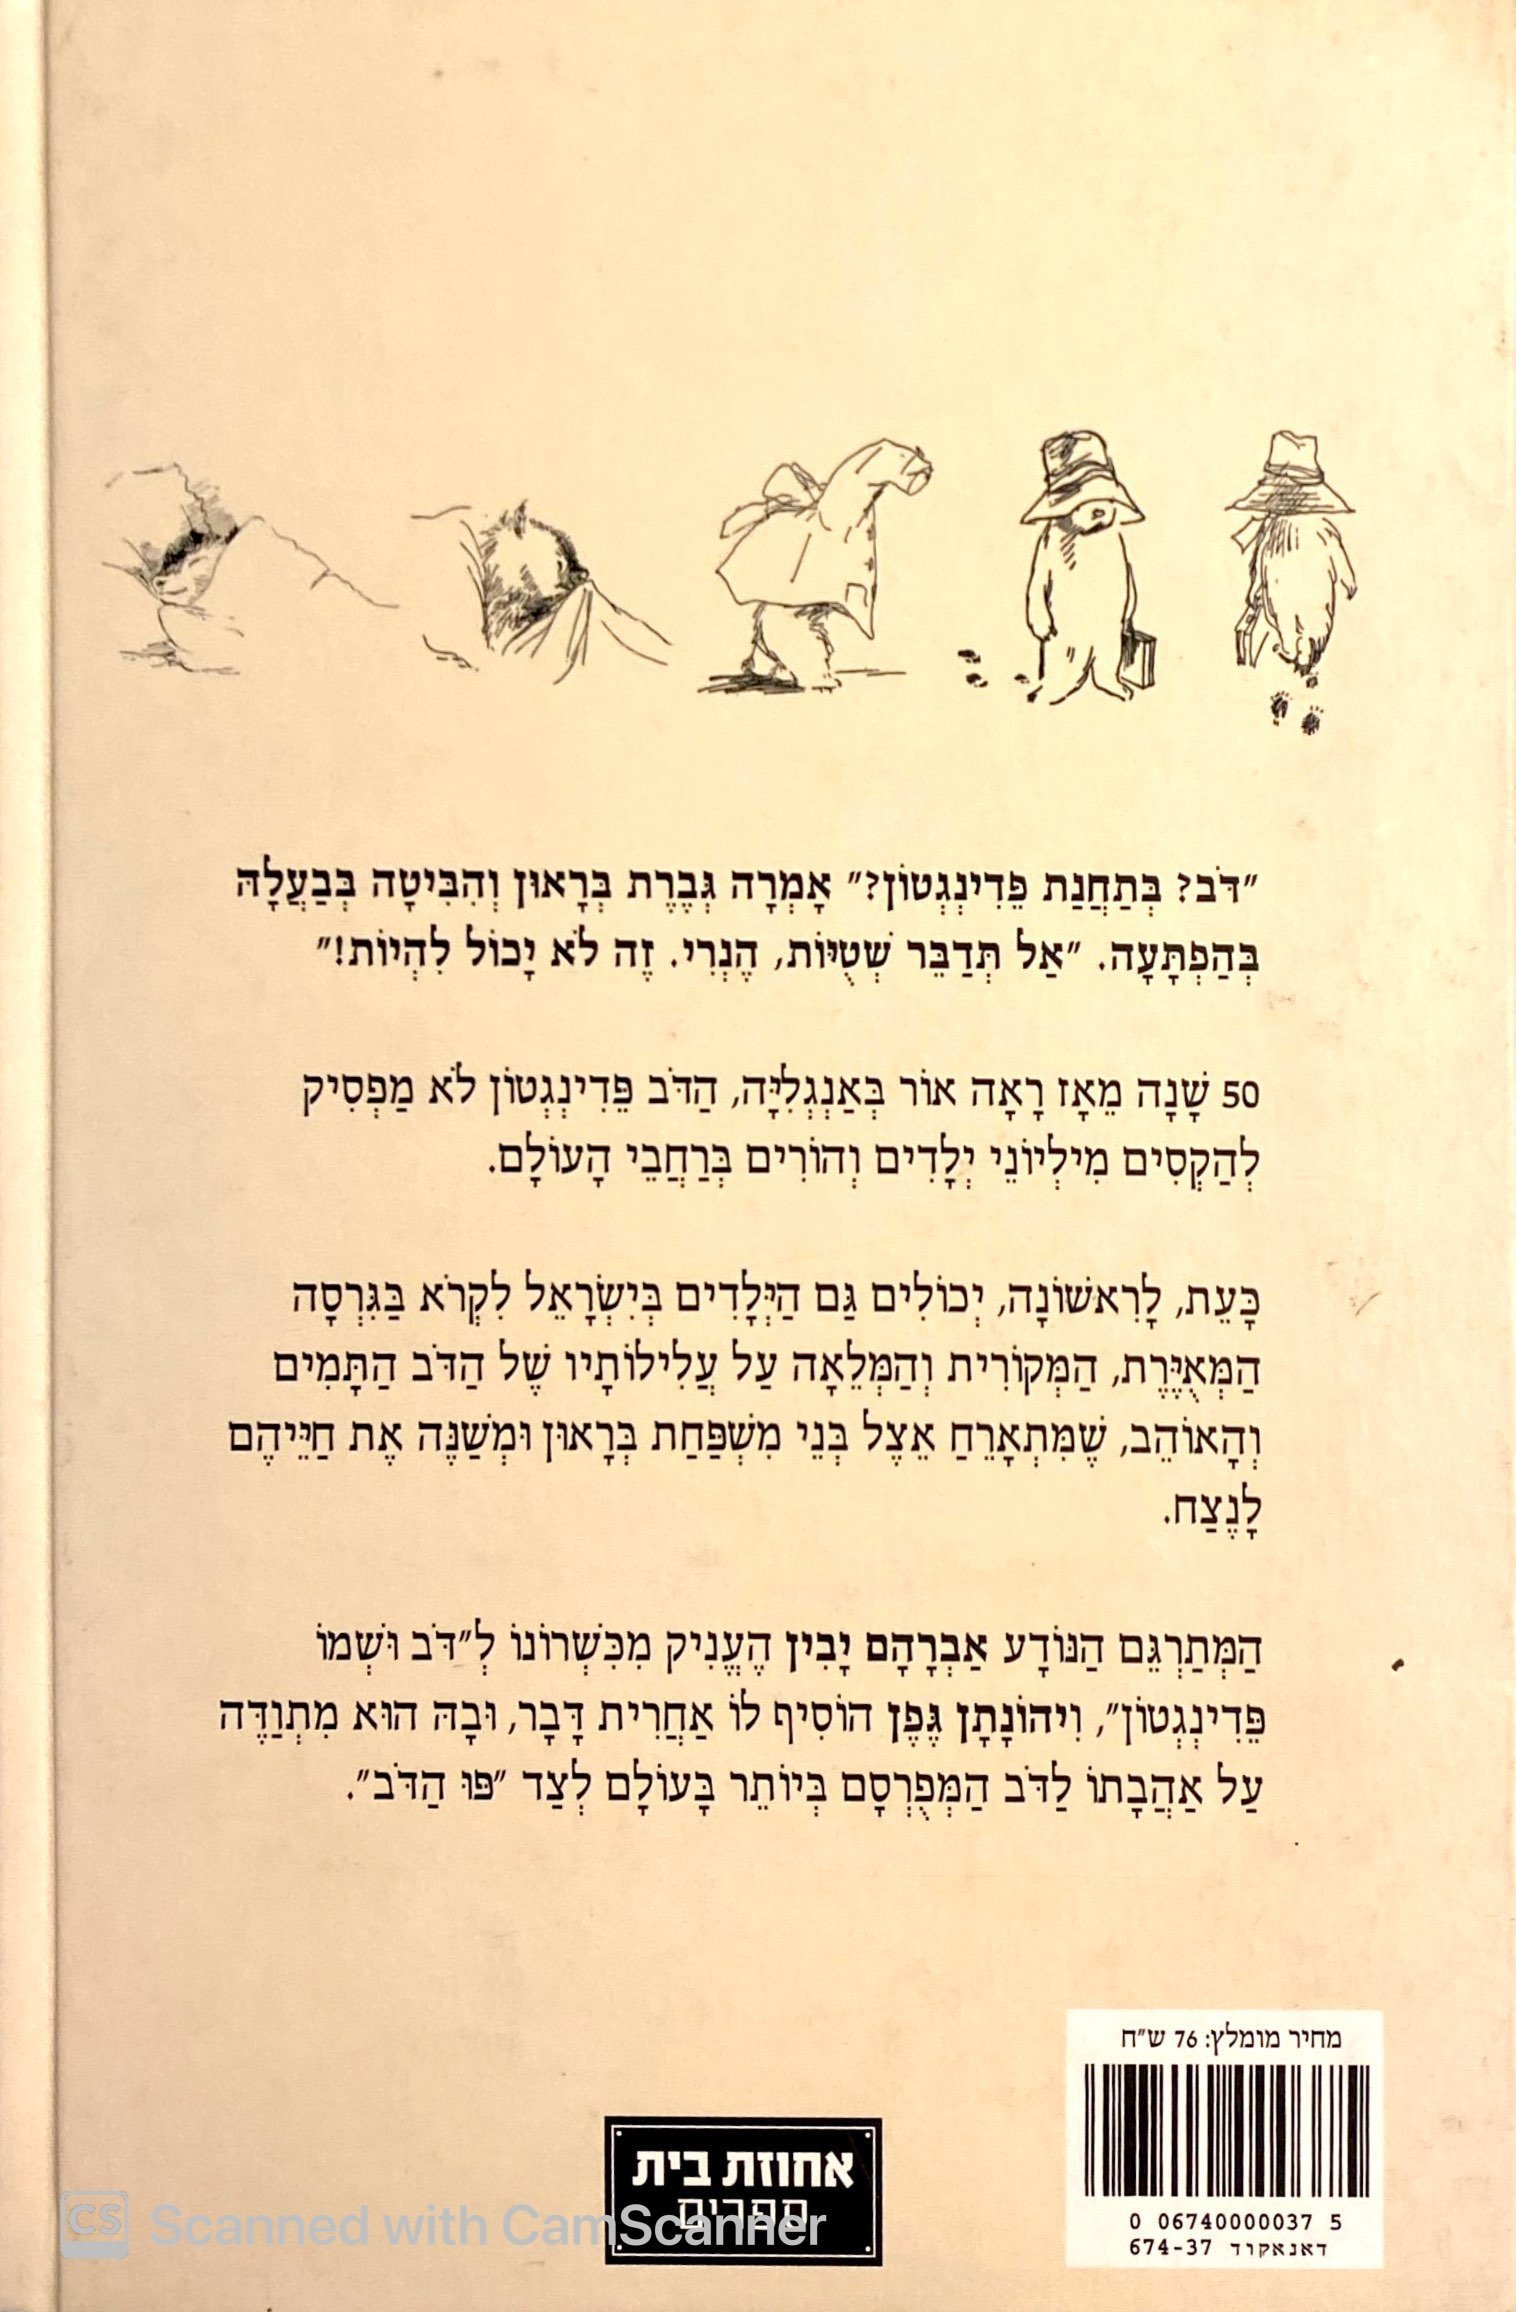 "דֹּב? בְּתַחֲנַת פֵּדִינְגְטוֹן?" אָמְרָה גְּבֶרֶת בְּרָאוּן וְהִבִּיטָה בְּבַעֲלָהּ
בְּהַפְתָּעָה. "אַל תְּדַבֵּר שְׁטֻיּוֹת, הֶנְרִי. זֶה לֹא יָכוֹל לִהְיוֹת!"
50 שָׁנָה מֵאָז רָאָה אוֹר בְּאַנְגְלִיָּה, הַדֹּב פֵּדִינְגְטוֹן לֹא מַפְסִיק
לְהַקְסִים מִילְיוֹנֵי יְלָדִים וְהוֹרִים בְּרַחֲבֵי הָעוֹלָם.
כָּעֵת, לָרִאשׁוֹנָה, יְכוֹלִים גַּם הַיְּלָדִים בְּיִשְׂרָאֵל לִקְרֹא בַּגִּרְסָה
הַמְּאֻיֶּרֶת, הַמְּקוֹרִית וְהַמְּלֵאָה עַל עֲלִילוֹתָיו שֶׁל הַדֹּב הַתָּמִים
וְהָאוֹהֵב, שֶׁמִּתְאָרֵחַ אֵצֶל בְּנֵי מִשְׁפַּחַת בְּרָאוּן וּמְשַׁנֶּה אֶת חַיֵּיהֶם
לָנֶצַח.
הַמְּתַרְגֵּם הַנּוֹדָע אַבְרָהָם יָבִין הֶעֱנִיק מִכִּשְׁרוֹנוֹ לְ"דֹּב וּשְׁמוֹ
פֵּדִינְגְטוֹן", וִיהוֹנָתָן גֶּפֶן הוֹסִיף לוֹ אַחֲרִית דָּבָר, וּבָהּ הוּא מִתְוַדֶּה
עַל אַהֲבָתוֹ לַדֹּב הַמְּפֻרְסָם בְּיוֹתֵר בָּעוֹלָם לְצַד "פּוּ הַדֹּב".
מחיר מומלץ: 76 ש"ח
0 06740000037 5
דאנאקוד 674-37
אחוזת בית
ספרים
CS Scanned with CamScanner